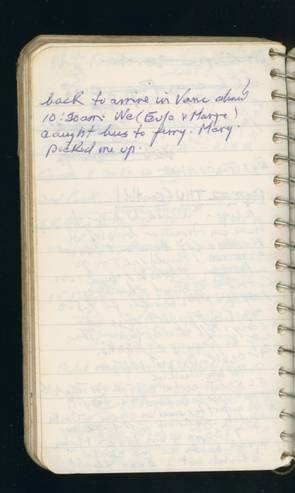 back to arrive in Vanc about
10:30am. We (Eula & Marge)
caught bus to ferry. Mary
picked me up.